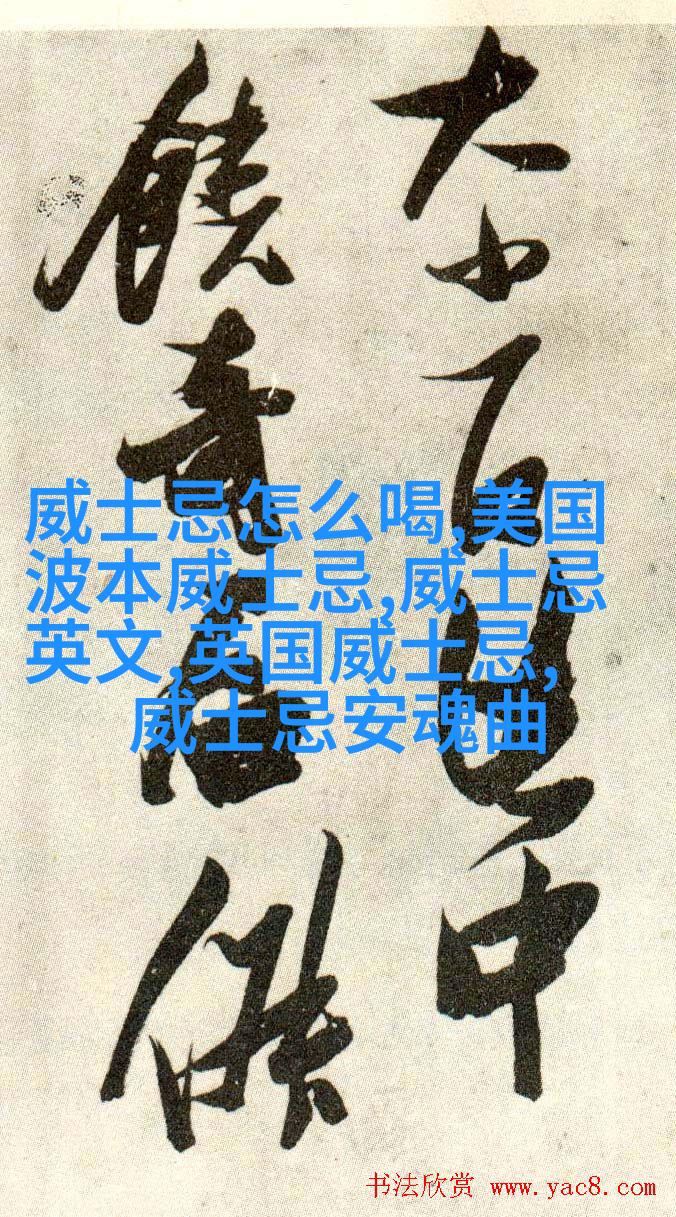 大小百中
饒奇
威士忌怎么喝,美国
波本威士忌,威士忌
英文,英国威士忌,
威士忌安魂曲
书法欣赏 www.yac8.com